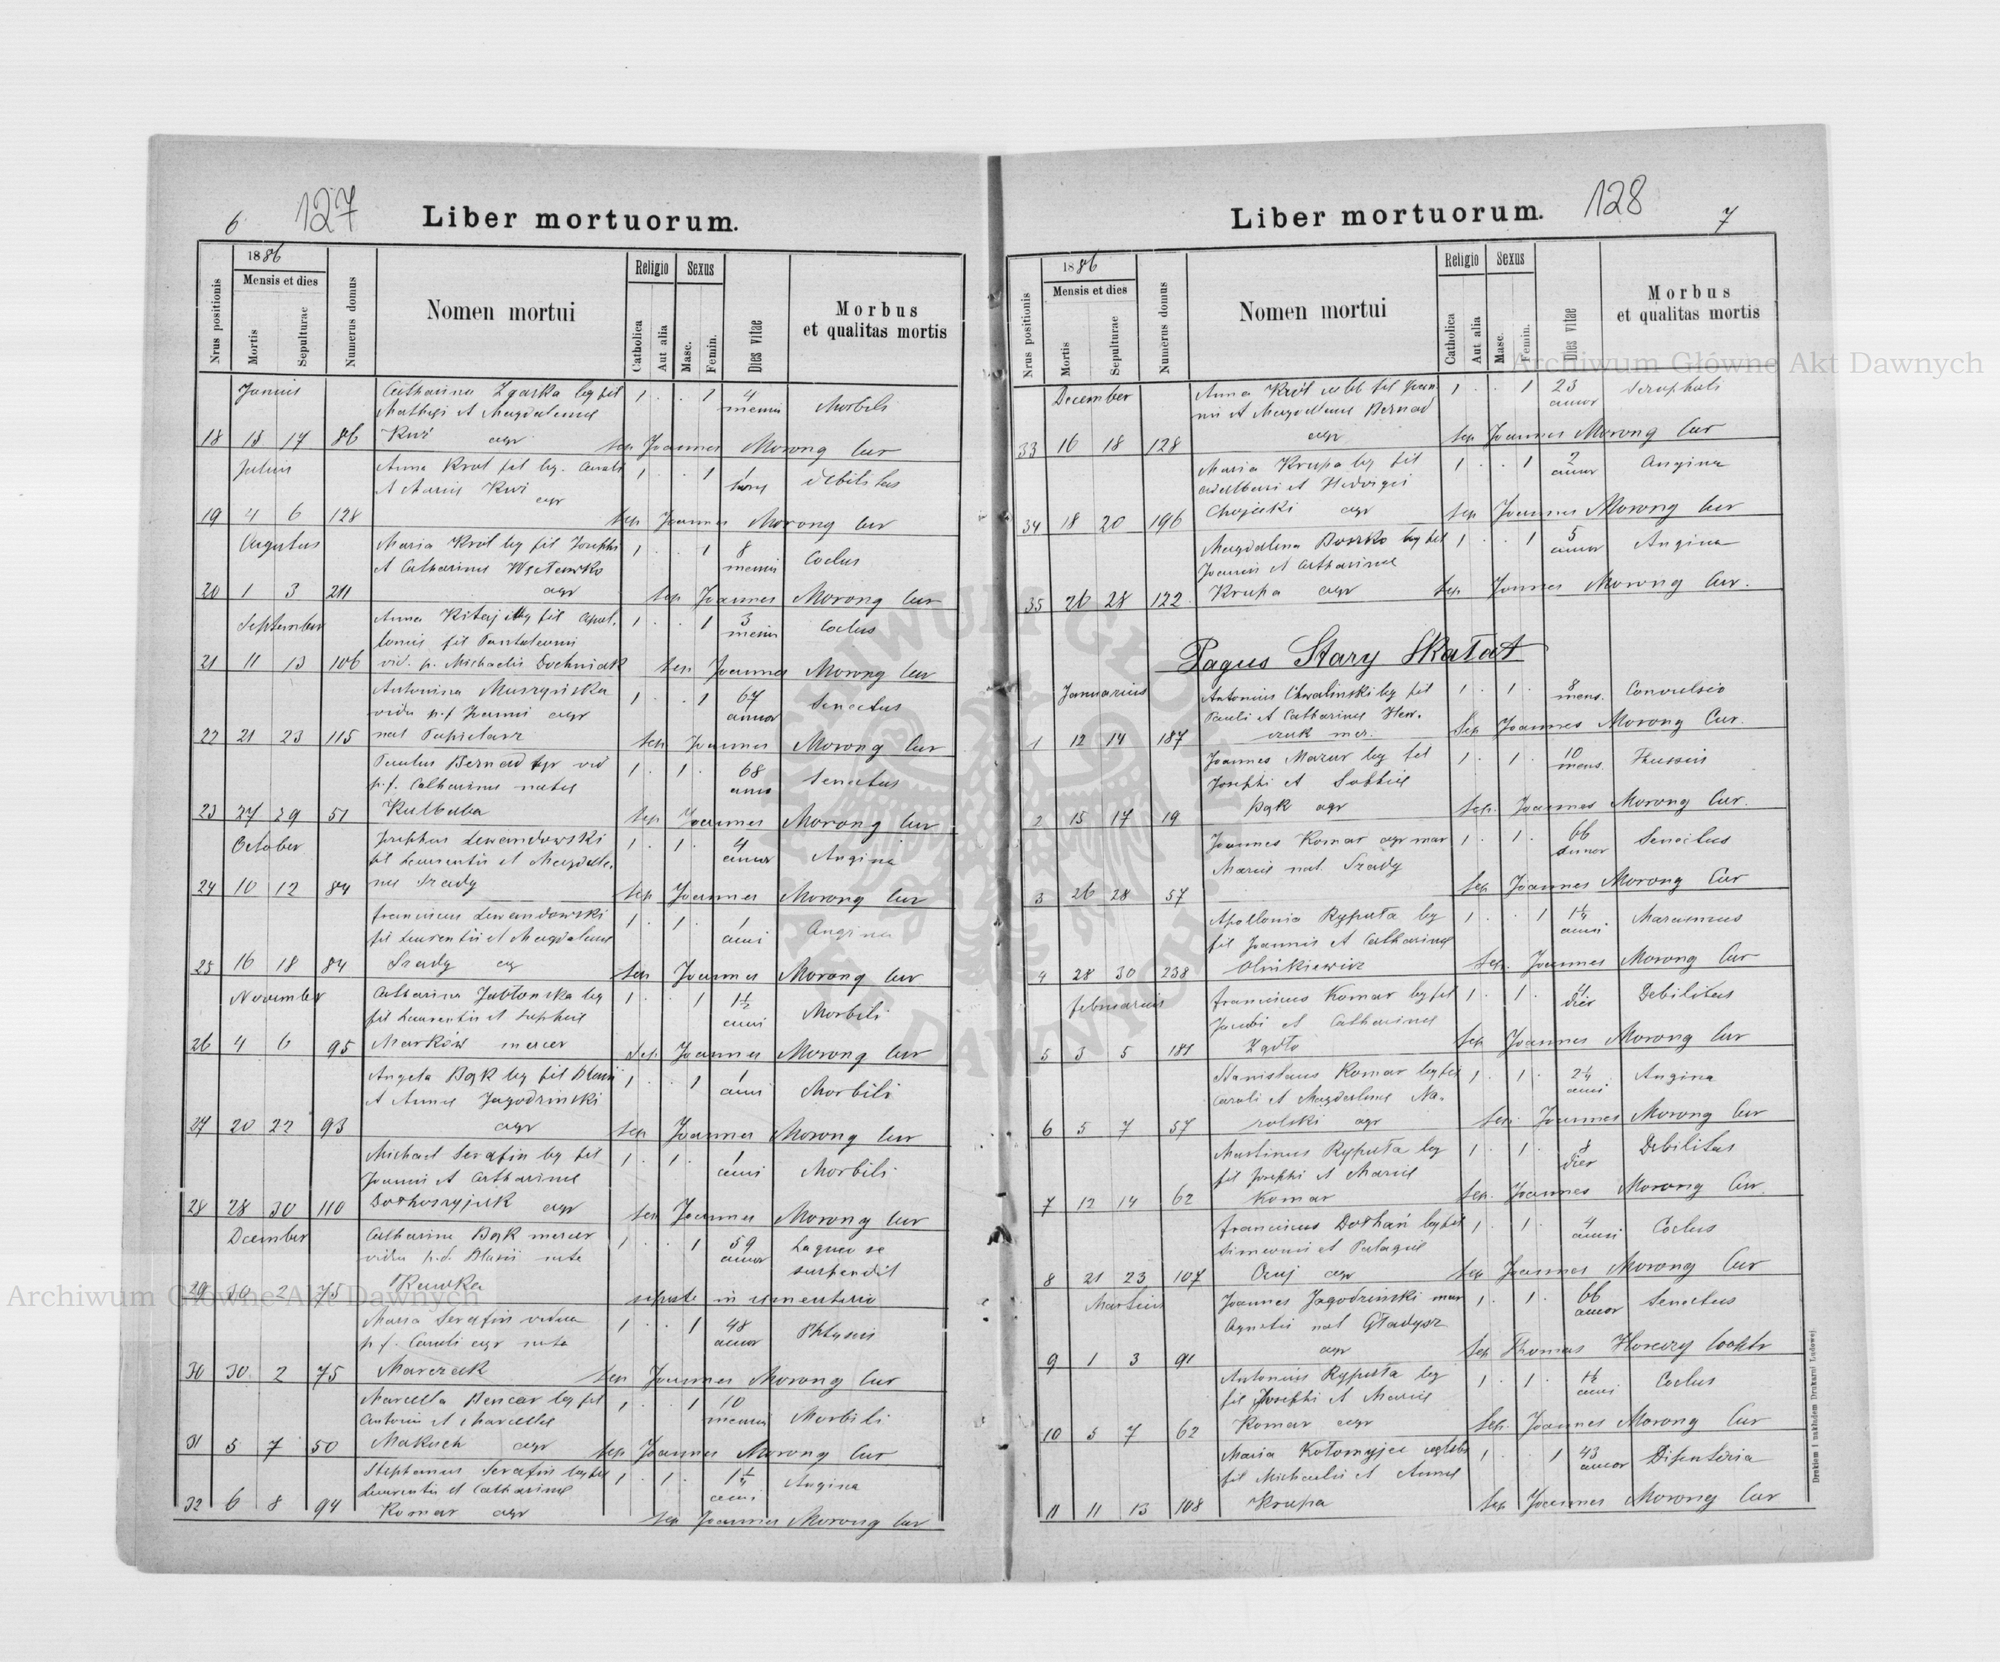 6
127
Liber mortuorum.
Nrus positionis
1886
Mensis et dies
Mortis
Sepulturae
Numerus domus
Nomen mortui
Religio
Catholica
Aut alia
Sexus
Masc.
Femin.
Dies vitae
Morbus
et qualitas mortis
Junius
Catharina Zgarska leg fil 1 . . 1 4
Mathei et Magdalenae mensi Morbili
18 15 17 86 agr sep Joannes Morong Cur
Julius
Anna Krol fil leg. Caroli 1 . . 1 1
et Mariae debilitas
agr
19 4 6 128 sep Joannes Morong Cur
Maria Krol leg fil Josephi 1 . . 1 8
et Catharinae mensi Coclus
20 1 3 211 agr sep Joannes Morong Cur
September
Anna leg fil 1 . . 1 3
fil Pantaleoni mensi Coclus
21 11 13 106 vid. p. Michaelis Dochniak sep Joannes Morong Cur
Antonina Muszyńska 1 . . 1 67
vidua p.f Joanni agr annor Senectus
22 21 23 115 nat sep Joannes Morong Cur
Paulus Bernad agr vid 1 . 1 . 68
p.f. Catharinae natae Senectus
23 27 29 51 Kulbaba sep Joannes Morong Cur
October
Josephus Lewandowski 1 . 1 . 4
fil Laurentii et Magdale- annor Angina
24 10 12 84 nae Srady sep Joannes Morong Cur
Franciscus Lewandowski 1 . 1 . 1
fil Laurentii et Magdalenae anni Angina
25 16 18 84 Srady sep Joannes Morong Cur
November
Catharina Jabłonska leg 1 . . 1 1½
fil Laurentii et Sophiae anni Morbili
26 4 6 95 Marków mercer sep Joannes Morong Cur
Angela Bąk leg fil Blasii 1 . . 1 1
et Annae Jagodzinski anni Morbili
27 20 22 93 agr sep Joannes Morong Cur
Michael Serafin leg fil 1 . 1 . 1
Joanni et Catharinae anni Morbili
28 28 30 110 agr sep Joannes Morong Cur
December
Catharina Bąk mercer 1 . . 1 59 Laqueo se
vidua p.d. Blasii nata annor suspendit
29 30 2 75 sepulta in cimenterio
Maria Serafin vidua 1 . . 1 48
p.f. Caroli agr nata annor Phtysis
30 30 2 75 Marczak sep Joannes Morong Cur
Marcella Bencar leg fil 1 . . 1 10
Antonii et Marcellae mensi Morbili
31 5 7 50 Makuch agr sep Joannes Morong Cur
Stephanus Serafin leg fil 1 . 1 . 1¼
Laurentii et Catharinae anni Angina
32 6 8 94 Komar agr sep Joannes Morong Cur
Liber mortuorum.
128
7
Nrus positionis
1886
Mensis et dies
Mortis
Sepulturae
Numerus domus
Nomen mortui
Religio
Catholica
Aut alia
Sexus
Masc.
Femin.
Dies vitae
Morbus
et qualitas mortis
December
Anna Król fil Joan 1 . . 1 23
nii et Magdalenae Bernad annor
33 16 18 128 agr sep Joannes Morong Cur
Maria Krupa leg fil 1 . . 1 2
Adalberti et Hedvigis annor Angina
34 18 20 196 agr sep Joannes Morong Cur
Magdalena leg fil 1 . . 1 5
Joannis et Catharinae annor Angina
35 26 28 122 Krupa agr sep Joannes Morong Cur.
Pagus Stary Skałat
Januarius
Antonius Chwalinski leg fil 1 . 1 . 8
Pauli et Catharinae Haw- mens. Convulsio
1 12 14 187 czuk mer. Sep Joannes Morong Cur.
Joannes Mazur leg fil 1 . 1 . 10
Josephi et Sophiae mens. Thussis
2 15 17 19 Bąk agr Sep. Joannes Morong Cur.
Joannes Komar agr mar 1 . 1 . 66
Mariae nat. Srady annor Senectus
3 26 28 57 Sep Joannes Morong Cur
Apollonia Ryputa leg 1 . . 1 1¼
fil Joannis et Catharinae anni Marasmus
4 28 30 238 Olinkiewicz Sep. Joannes Morong Cur
Februarius
Franciscus Komar leg fil 1 . 1 . dier Debilitas
Jacobi et Catharinae
5 3 5 181 Żądło Sep Joannes Morong Cur
Stanislaus Komar leg fil 1 . 1 . 2¼
Caroli et Magdalenae Na- anni Angina
6 5 7 57 rolski agr Sep. Joannes Morong Cur
Martinus Ryputa leg 1 . 1 . 8
fil Josephi et Mariae dier Debilitas
7 12 14 62 Komar Sep. Joannes Morong Cur.
Franciscus Dołhań leg fil 1 . 1 . 4
Simeonis et Pelagiae anni Coclus
8 21 23 107 agr Sep Joannes Morong Cur
Martius
Joannes Jagodzinski mar 1 . 1 . 66
Agnetis nat Gładysz annor Senectus
9 1 3 91 agr Sep Thomas Cooptr
Antonius Ryputa leg 1 . 1 .
fil Josephi et Mariae anni Coclus
10 5 7 62 Komar agr Sep. Joannes Morong Cur
Maria Kołomyjec 1 . . 1 43
fil Michaelis et Annae annor Disenteria
11 11 13 108 Krupa Sep Joannes Morong Cur
Drukiem i nakładem Drukarni Ludowej.
Archiwum Główne Akt Dawnych
Archiwum Główne Akt Dawnych
ARCHIWUM GŁÓWNE AKT DAWNYCH